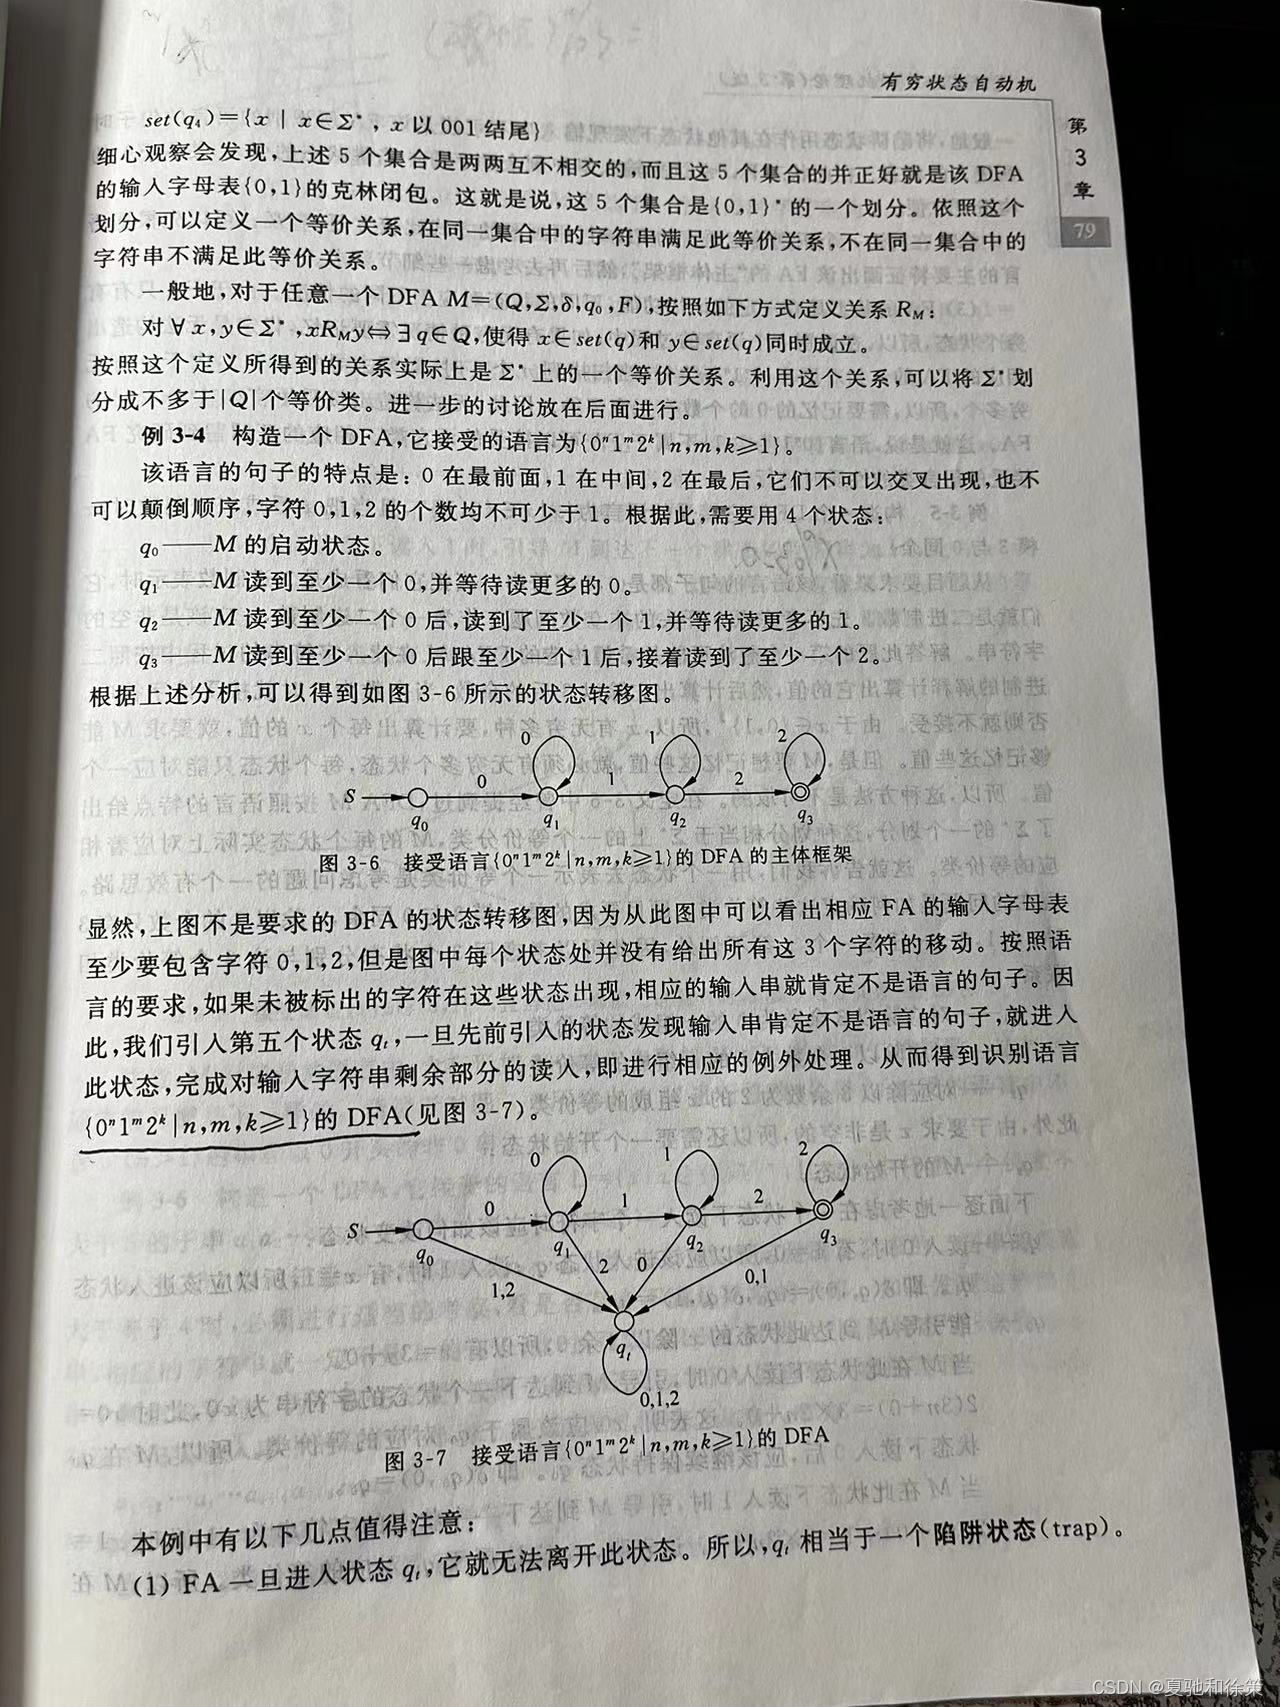 有穷状态自动机
第
3
章
79
set(q₄)={x | x∈Σ*, x 以 001 结尾}
细心观察会发现,上述 5 个集合是两两互不相交的,而且这 5 个集合的并正好就是该 DFA
的输入字母表{0,1}的克林闭包。这就是说,这 5 个集合是{0,1}*的一个划分。依照这个
划分,可以定义一个等价关系,在同一集合中的字符串满足此等价关系,不在同一集合中的
字符串不满足此等价关系。
一般地,对于任意一个 DFA M=(Q,Σ,δ,q₀,F),按照如下方式定义关系 R_M:
对∀x,y∈Σ*,xR_My⇔∃q∈Q,使得 x∈set(q)和 y∈set(q)同时成立。
按照这个定义所得到的关系实际上是 Σ*上的一个等价关系。利用这个关系,可以将 Σ*划
分成不多于|Q|个等价类。进一步的讨论放在后面进行。
例 3-4 构造一个 DFA,它接受的语言为{0ⁿ1ᵐ2ᵏ|n,m,k≥1}。
该语言的句子的特点是:0 在最前面,1 在中间,2 在最后,它们不可以交叉出现,也不
可以颠倒顺序,字符 0,1,2 的个数均不可少于 1。根据此,需要用 4 个状态:
q₀——M 的启动状态。
q₁——M 读到至少一个 0,并等待读更多的 0。
q₂——M 读到至少一个 0 后,读到了至少一个 1,并等待读更多的 1。
q₃——M 读到至少一个 0 后跟至少一个 1 后,接着读到了至少一个 2。
根据上述分析,可以得到如图 3-6 所示的状态转移图。
0 1 2
S 0 1 2
q₀ q₁ q₂ q₃
图 3-6 接受语言{0ⁿ1ᵐ2ᵏ|n,m,k≥1}的 DFA 的主体框架
显然,上图不是要求的 DFA 的状态转移图,因为从此图中可以看出相应 FA 的输入字母表
至少要包含字符 0,1,2,但是图中每个状态处并没有给出所有这 3 个字符的移动。按照语
言的要求,如果未被标出的字符在这些状态出现,相应的输入串就肯定不是语言的句子。因
此,我们引入第五个状态 qₜ,一旦先前引入的状态发现输入串肯定不是语言的句子,就进入
此状态,完成对输入字符串剩余部分的读入,即进行相应的例外处理。从而得到识别语言
{0ⁿ1ᵐ2ᵏ|n,m,k≥1}的 DFA(见图 3-7)。
0 1 2
S 0 1 2
q₀ q₁ q₂ q₃
1,2 2 0 0,1
qₜ
0,1,2
图 3-7 接受语言{0ⁿ1ᵐ2ᵏ|n,m,k≥1}的 DFA
本例中有以下几点值得注意:
(1) FA 一旦进入状态 qₜ,它就无法离开此状态。所以,qₜ 相当于一个陷阱状态(trap)。
CSDN @夏驰和徐策